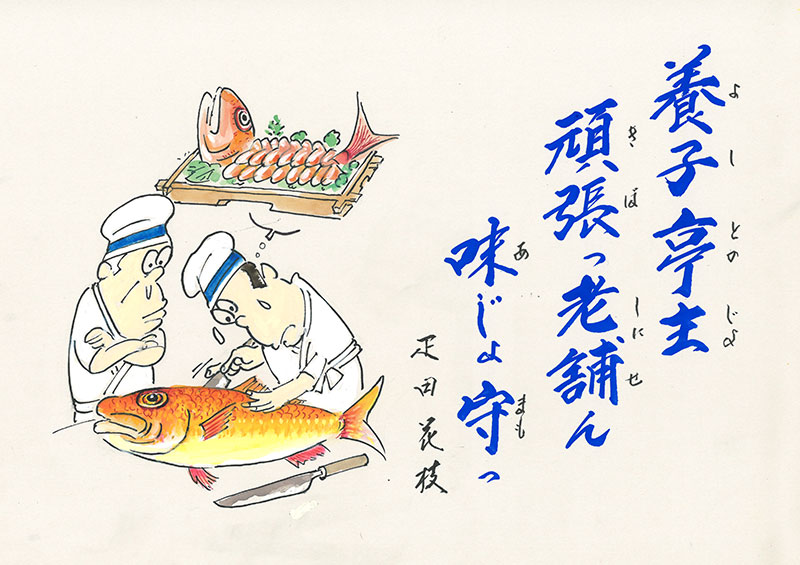 養子亭主
よしとのじょ
頑張っ老舗ん
きばしにせ
味じょ守っ
あまも
疋田花枝